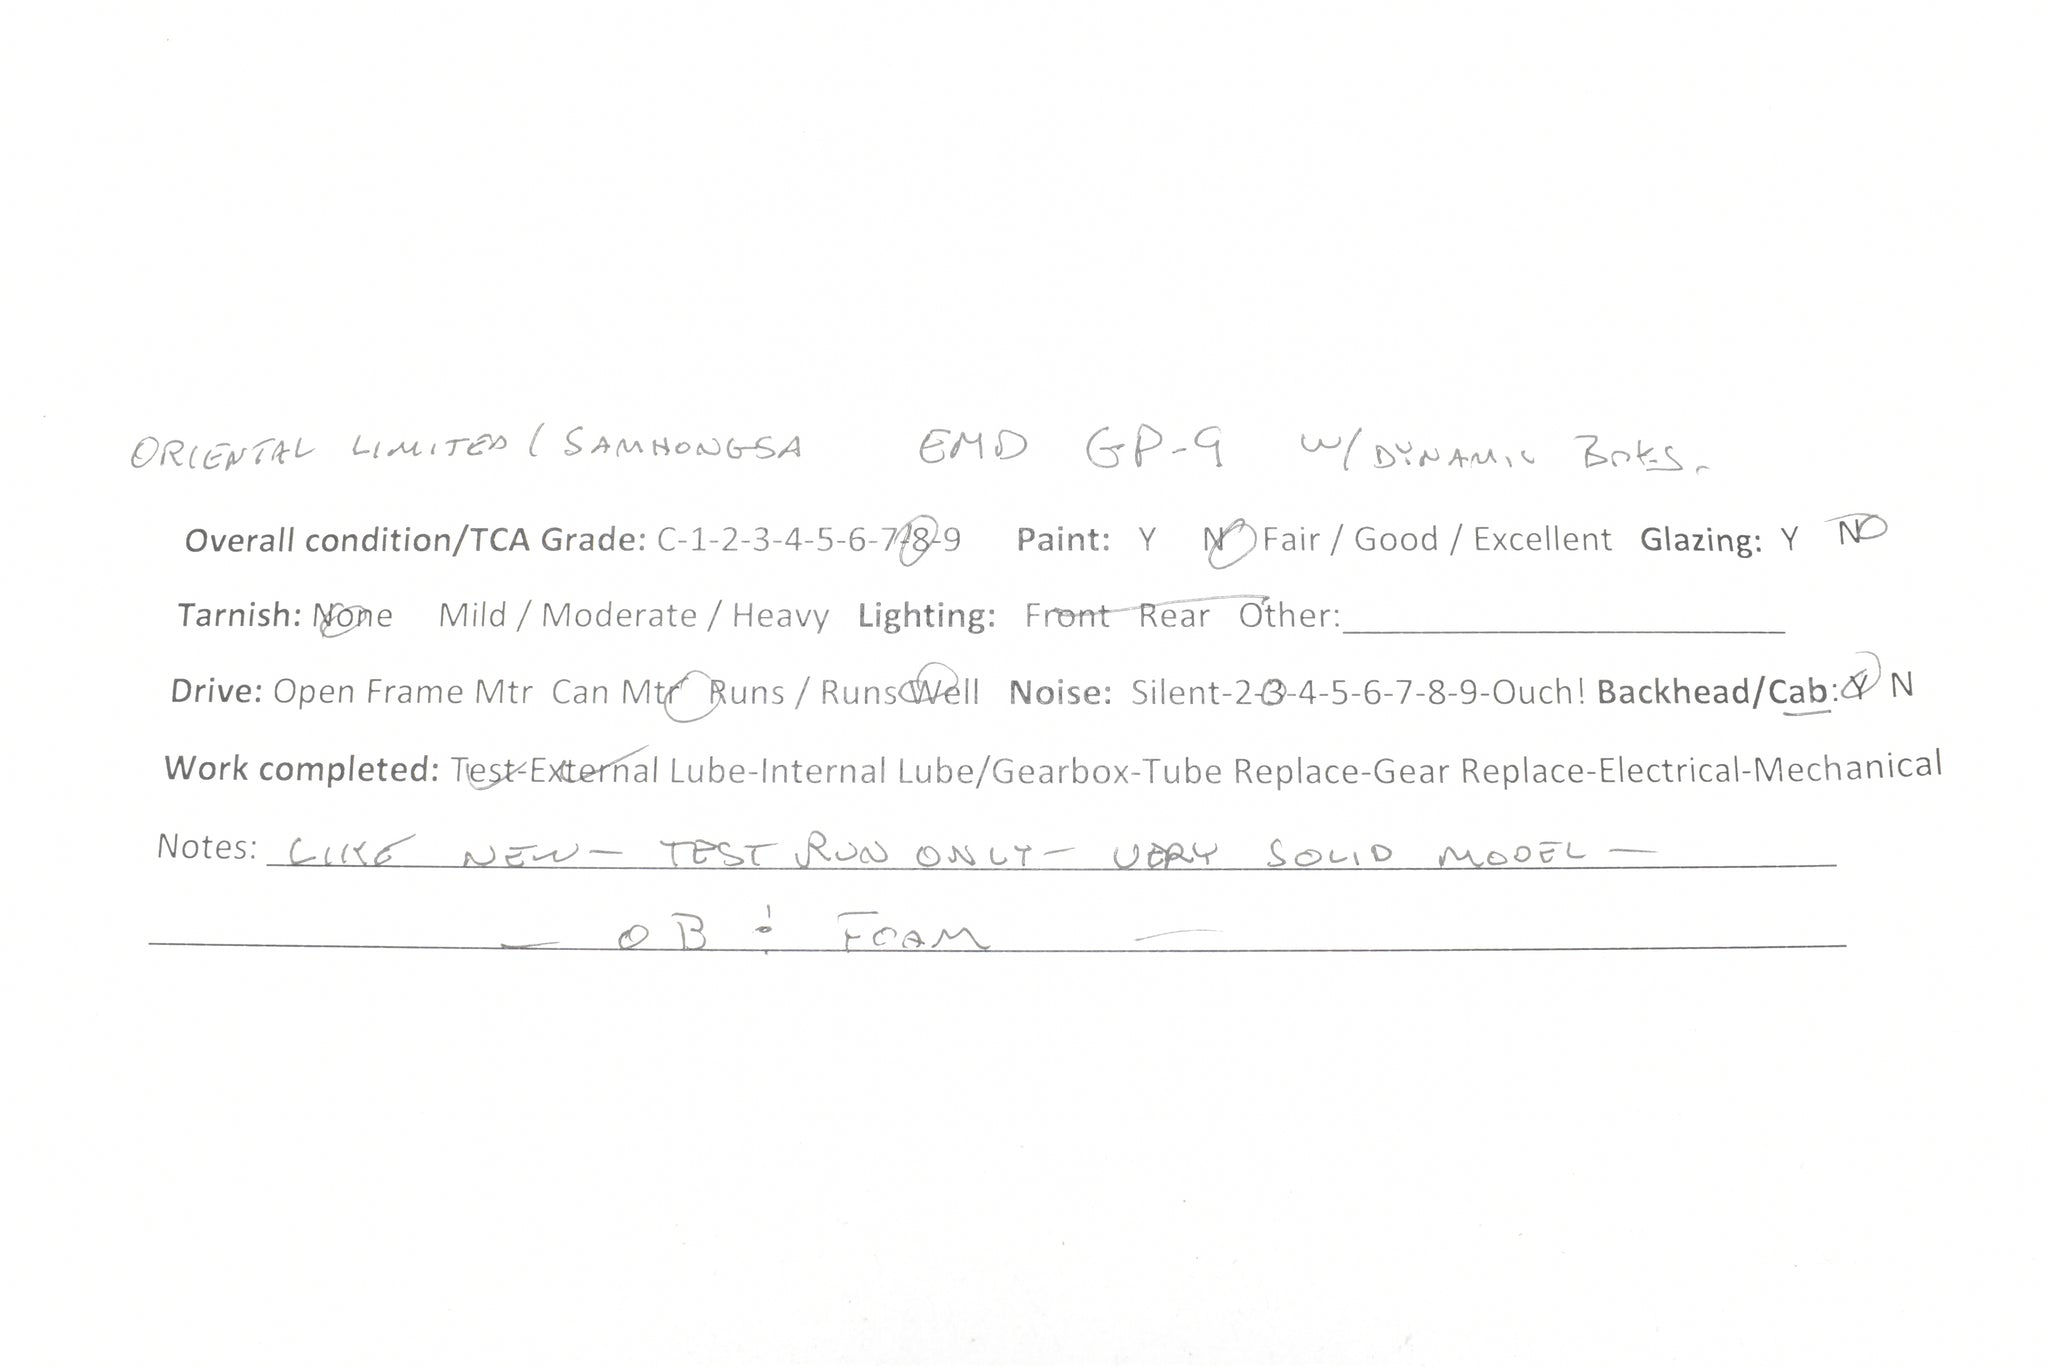 ORIENTAL LIMITED / SAMHONGSA EMD GP-9 W/ DYNAMIC BRKS.
Overall condition/TCA Grade: C-1-2-3-4-5-6-7-8-9 Paint: Y N Fair / Good / Excellent Glazing: Y NO
Tarnish: None Mild / Moderate / Heavy Lighting: Front Rear Other:
Drive: Open Frame Mtr Can Mtr Runs / Runs Well Noise: Silent-2-3-4-5-6-7-8-9-Ouch! Backhead/Cab: Y N
Work completed: Test-External Lube-Internal Lube/Gearbox-Tube Replace-Gear Replace-Electrical-Mechanical
Notes: LIKE NEW - TEST RUN ONLY - VERY SOLID MODEL -
- OB & FOAM -